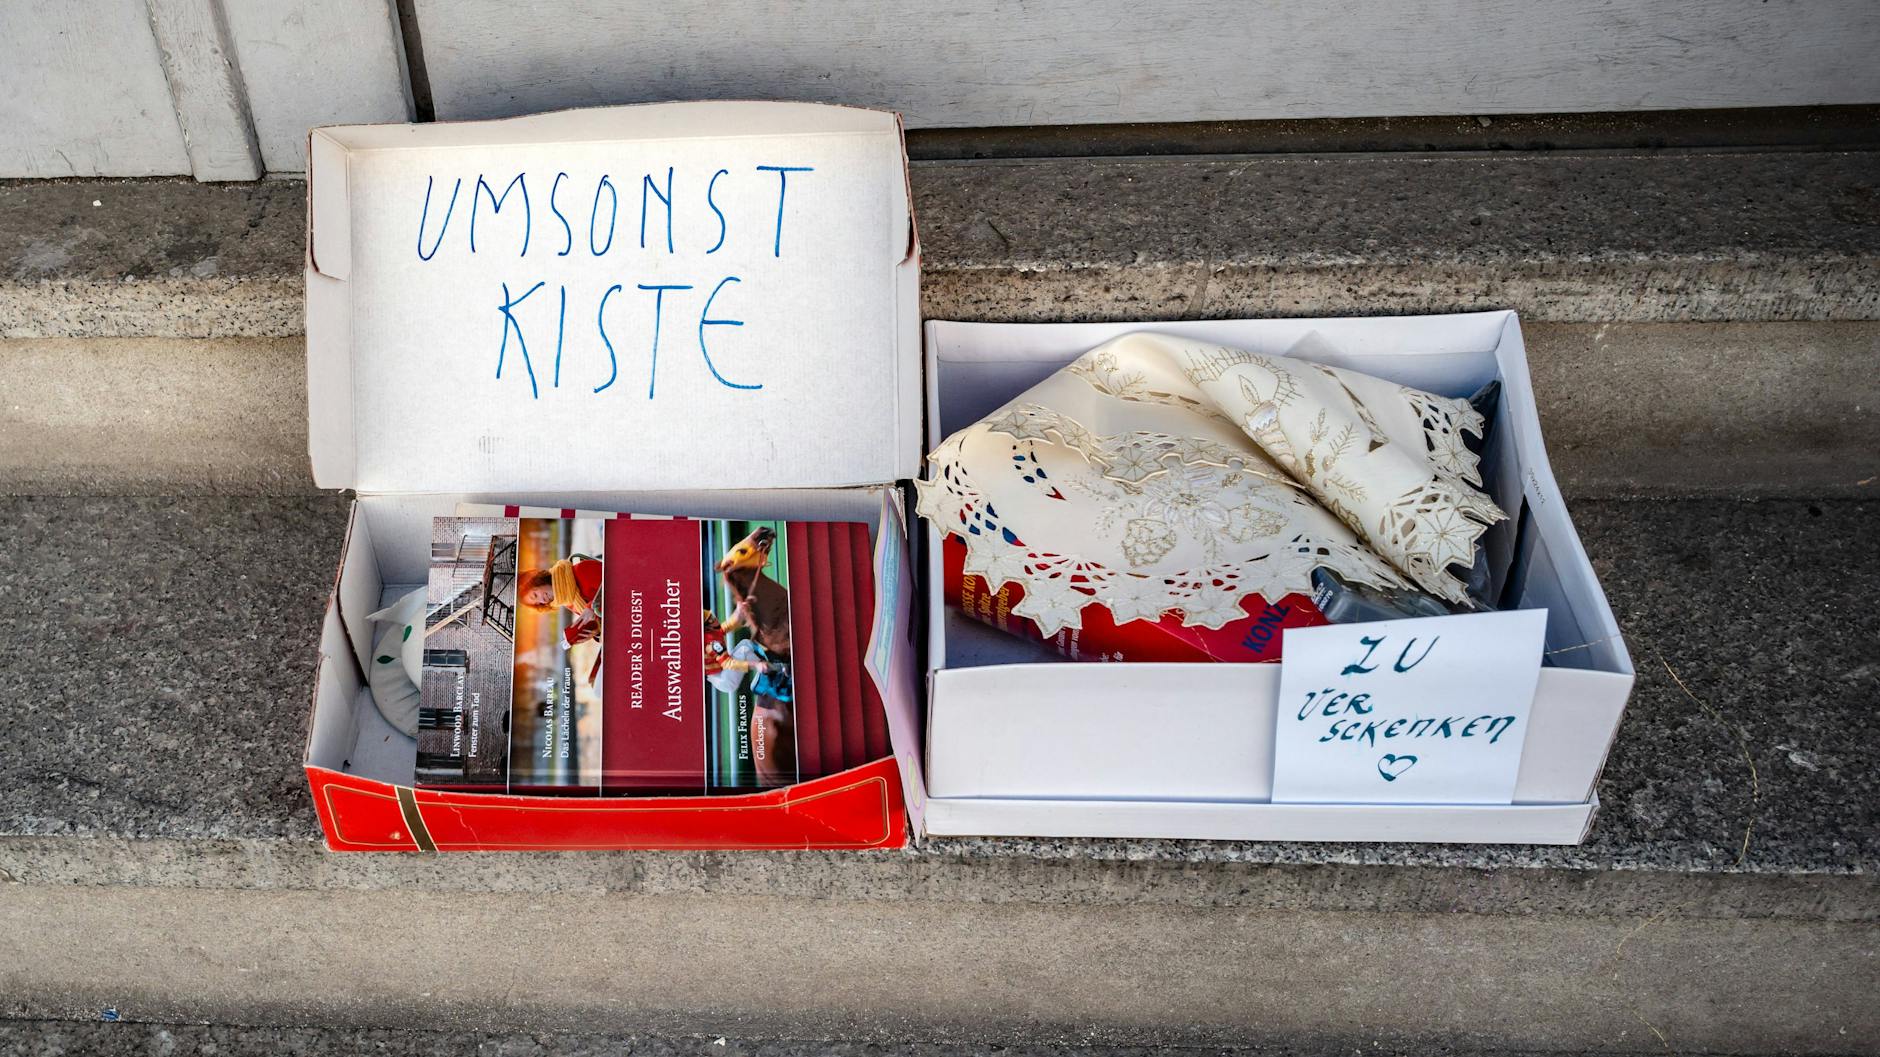 UMSONST
KISTE
LINWOOD BARCLAY
Fenster zum Tod
NICOLAS BARREAU
Das Lächeln der Frauen
READER'S DIGEST
Auswahlbücher
FELIX FRANCIS
Glücksspiel
KONZ
ZU
VER
SCKENKEN